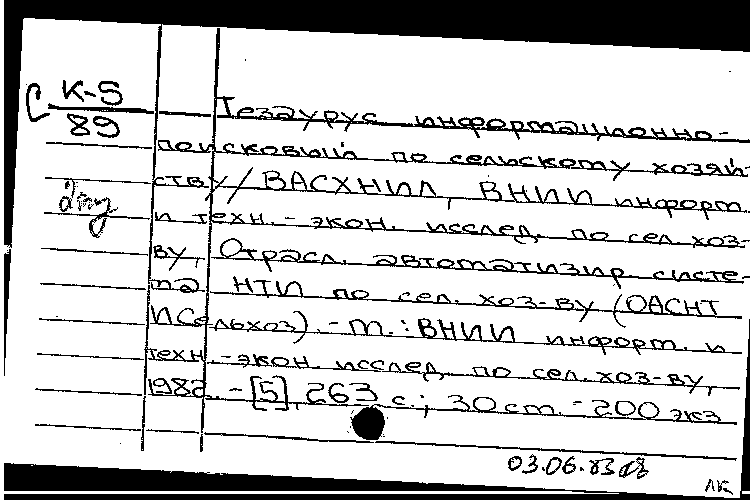 С К-5
89
Тезаурус информационно-
поисковый по сельскому хозяй-
ству/ВАСХНИЛ, ВНИИ информ.
и техн.-экон. исслед. по сел. хоз-
ву, Отрасл. автоматизир. систе-
ма НТИ по сел. хоз-ву (ОАСНТ
ИСельхоз).-М.:ВНИИ информ. и
техн.-экон. исслед. по сел. хоз-ву,
1982.-[5], 263 с.; 30 см.-200 экз
03.06.83